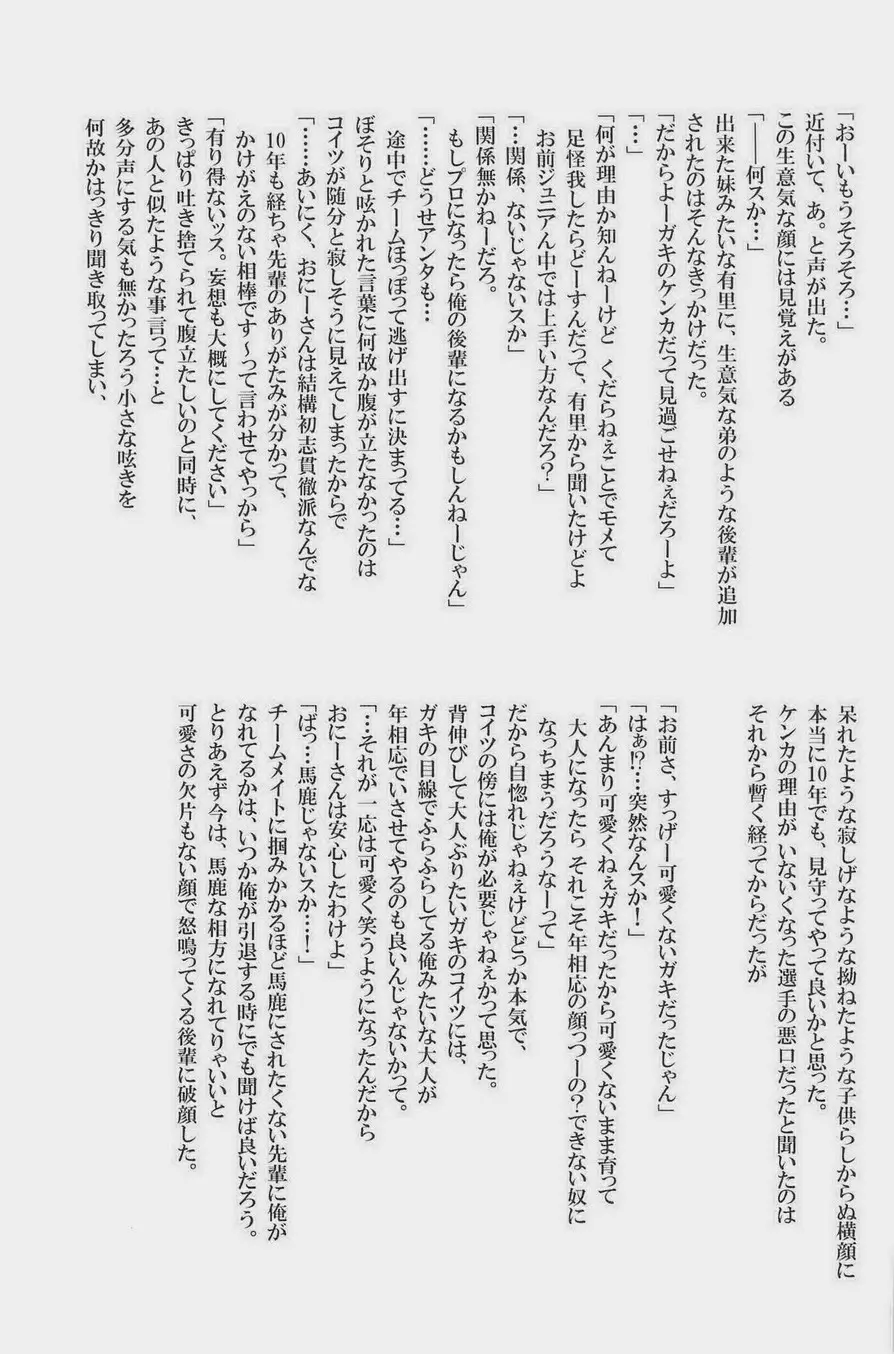 「おーいもうそろそろ…」
近付いて、あ。と声が出た。
この生意気な顔には見覚えがある
「――何スか…」
出来た妹みたいな有里に、生意気な弟のような後輩が追加
されたのはそんなきっかけだった。
「だからよーガキのケンカだって見過ごせねぇだろーよ」
「…」
「何が理由か知んねーけど　くだらねぇことでモメて
足怪我したらどーすんだって、有里から聞いたけどよ
お前ジュニアん中では上手い方なんだろ？」
「…関係、ないじゃないスか」
「関係無かねーだろ。
もしプロになったら俺の後輩になるかもしんねーじゃん」
「……どうせアンタも…
途中でチームほっぽって逃げ出すに決まってる…」
ぼそりと呟かれた言葉に何故か腹が立たなかったのは
コイツが随分と寂しそうに見えてしまったからで
「……あいにく、おにーさんは結構初志貫徹派なんでな
10年も経ちゃ先輩のありがたみが分かって、
かけがえのない相棒です〜って言わせてやっから」
「有り得ないッス。妄想も大概にしてください」
きっぱり吐き捨てられて腹立たしいのと同時に、
あの人と似たような事言って…と
多分声にする気も無かったろう小さな呟きを
何故かはっきり聞き取ってしまい、
呆れたような寂しげなような拗ねたような子供らしからぬ横顔に
本当に10年でも、見守ってやって良いかと思った。
ケンカの理由が いないくなった選手の悪口だったと聞いたのは
それから暫く経ってからだったが
「お前さ、すっげー可愛くないガキだったじゃん」
「はぁ!?……突然なんスか！」
「あんまり可愛くねぇガキだったから可愛くないまま育って
大人になったら それこそ年相応の顔っつーの？できない奴に
なっちまうだろうなーって」
だから自惚れじゃねぇけどどっか本気で、
コイツの傍には俺が必要じゃねぇかって思った。
背伸びして大人ぶりたいガキのコイツには、
ガキの目線でふらふらしてる俺みたいな大人が
年相応でいさせてやるのも良いんじゃないかって。
「…それが一応は可愛く笑うようになったんだから
おにーさんは安心したわけよ」
「ばっ…馬鹿じゃないスか……！」
チームメイトに掴みかかるほど馬鹿にされたくない先輩に俺が
なれてるかは、いつか俺が引退する時にでも聞けば良いだろう。
とりあえず今は、馬鹿な相方になれてりゃいいと
可愛さの欠片もない顔で怒鳴ってくる後輩に破顔した。